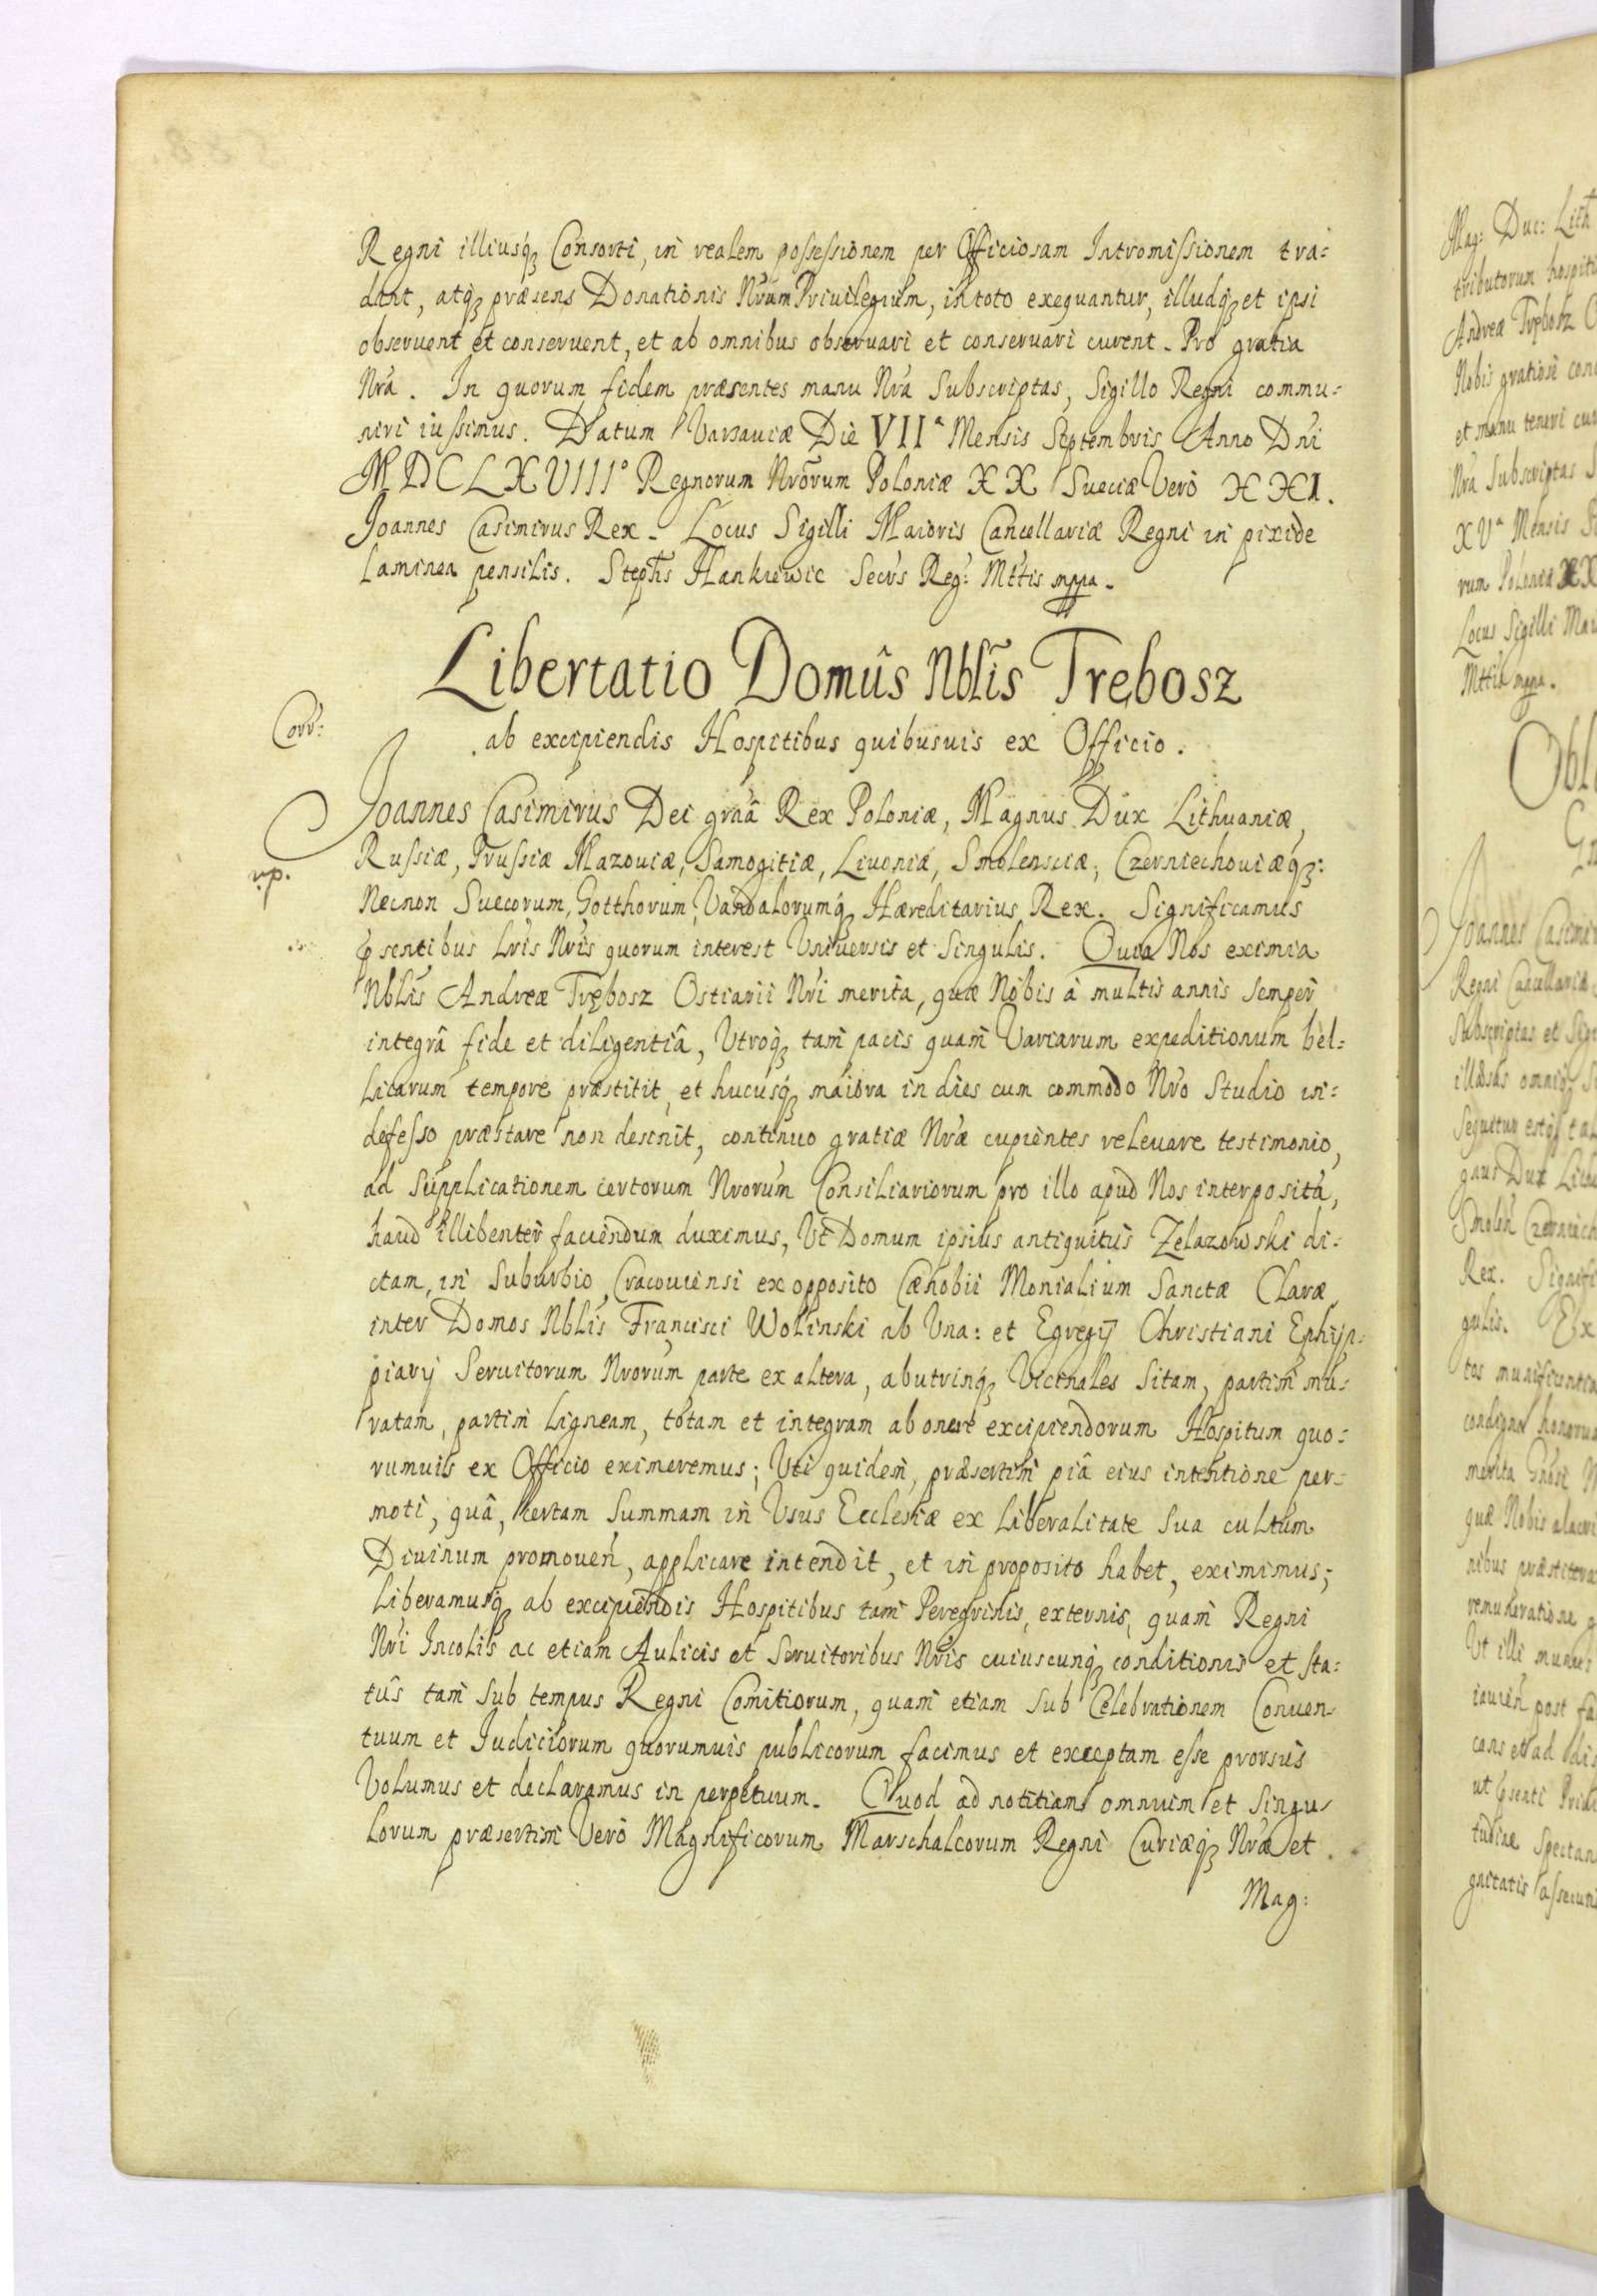 Regni illiusq; Consorti, in realem possessionem per Officiosam Intromissionem tra=
dant, atq; præsens Donationis Nrum Priuilegium, in toto exequantur, illudq; et ipsi
obseruent et conseruent, et ab omnibus obseruari et conseruari curent. Pro gratia
Nra. In quorum fidem præsentes manu Nra Subscriptas, Sigillo Regni commu=
niri iussimus. Datum Varsauiæ Die VIIª Mensis Septembris Anno Dni
MDCLXVIIIº Regnorum Nrorum Poloniæ XX Sueciæ Verò XXI.
Joannes Casimirus Rex. Locus Sigilli Maioris Cancellariæ Regni in pixide
laminea pensilis. Stephs Hankiewic Secrs Reg: Mttis mppa.
Libertatio Domûs Nblis Trębosz
Corr:
ab excipiendis Hospitibus quibusuis ex Officio.
Joannes Casimirus Dei grâa Rex Poloniæ, Magnus Dux Lithuaniæ,
Russiæ, Prussiæ Mazouiæ, Samogitiæ, Liuoniæ, Smolensciæ, Czerniechouiæq;:
rp.
Necnon Suecorum, Gotthorum, Vandalorumq; Hæreditarius Rex. Significamus
psentibus Lris Nris quorum interest Vniuersis et Singulis. Quia Nos eximia
Nblis Andreæ Trębosz Ostiarii Nri merita, quæ Nobis à multis annis semper
integrâ fide et diligentiâ, Vtroq; tam pacis quam Variarum expeditionum bel=
licarum tempore præstitit, et hucusq; maiora in dies cum commodo Nro Studio in=
defesso præstare non desinit, continuo gratiæ Nræ cupientes releuare testimonio,
ad Supplicationem certorum Nrorum Consiliariorum pro illo apud Nos interposita,
haud illibenter faciendum duximus, Vt Domum ipsius antiquitùs Zelazowski di=
ctam, in Suburbio Cracouiensi ex opposito Cænobii Monialium Sanctæ Claræ,
inter Domos Nblis Francisci Wolinski ab Vna: et Egregij Christiani Ephip=
piarij Seruitorum Nrorum parte ex altera, abutrinq; Vicinales Sitam, partim mu=
ratam, partim ligneam, totam et integram ab onere excipiendorum Hospitum quo=
rumuis ex Officio eximeremus; Vti quidem, præsertim piâ eius intentione per=
moti, quâ, certam Summam in Vsus Ecclesiæ ex Liberalitate Sua cultum
Diuinum promouen, applicare intendit, et in proposito habet, eximimus;
Liberamusq; ab excipiendis Hospitibus tam Peregrinis, externis, quam Regni
Nri Incolis ac etiam Aulicis et Seruitoribus Nris cuiuscunq; conditionis et sta=
tûs tam Sub tempus Regni Comitiorum, quam etiam sub Celebrationem Conuen=
tuum et Judiciorum quorumuis publicorum facimus et exceptam esse prorsus
Volumus et declaramus in perpetuum. Quod ad notitiam omnium et Singu=
lorum præsertim Verò Magnificorum Marschalcorum Regni Curiæq; Nræ et
Mag:
Mag: Duc: Lith
tributorum hospiti
Andreæ Trębosz
Nobis gratiose con
et manu teneri cur
Nra Subscriptas
XVª Mensis
rum Poloniæ XX
Locus Sigilli Mai
Mttis mppa.
Obl
Joannes Casimir
Regni Cancellariæ
Subscriptas et Sigi
illæsas omniq;
Sequitur estq; tal
gnus Dux Lithu
Smolen Czerniech
Rex. Signifi
gulis. Ex
tos munificentia
condigne honorum
merita
quæ Nobis alacri
nibus præstitera
remuneratione q
Vt illi
post fa
cans et ad
ut psenti Priui
Spectan
gnitatis assecuni